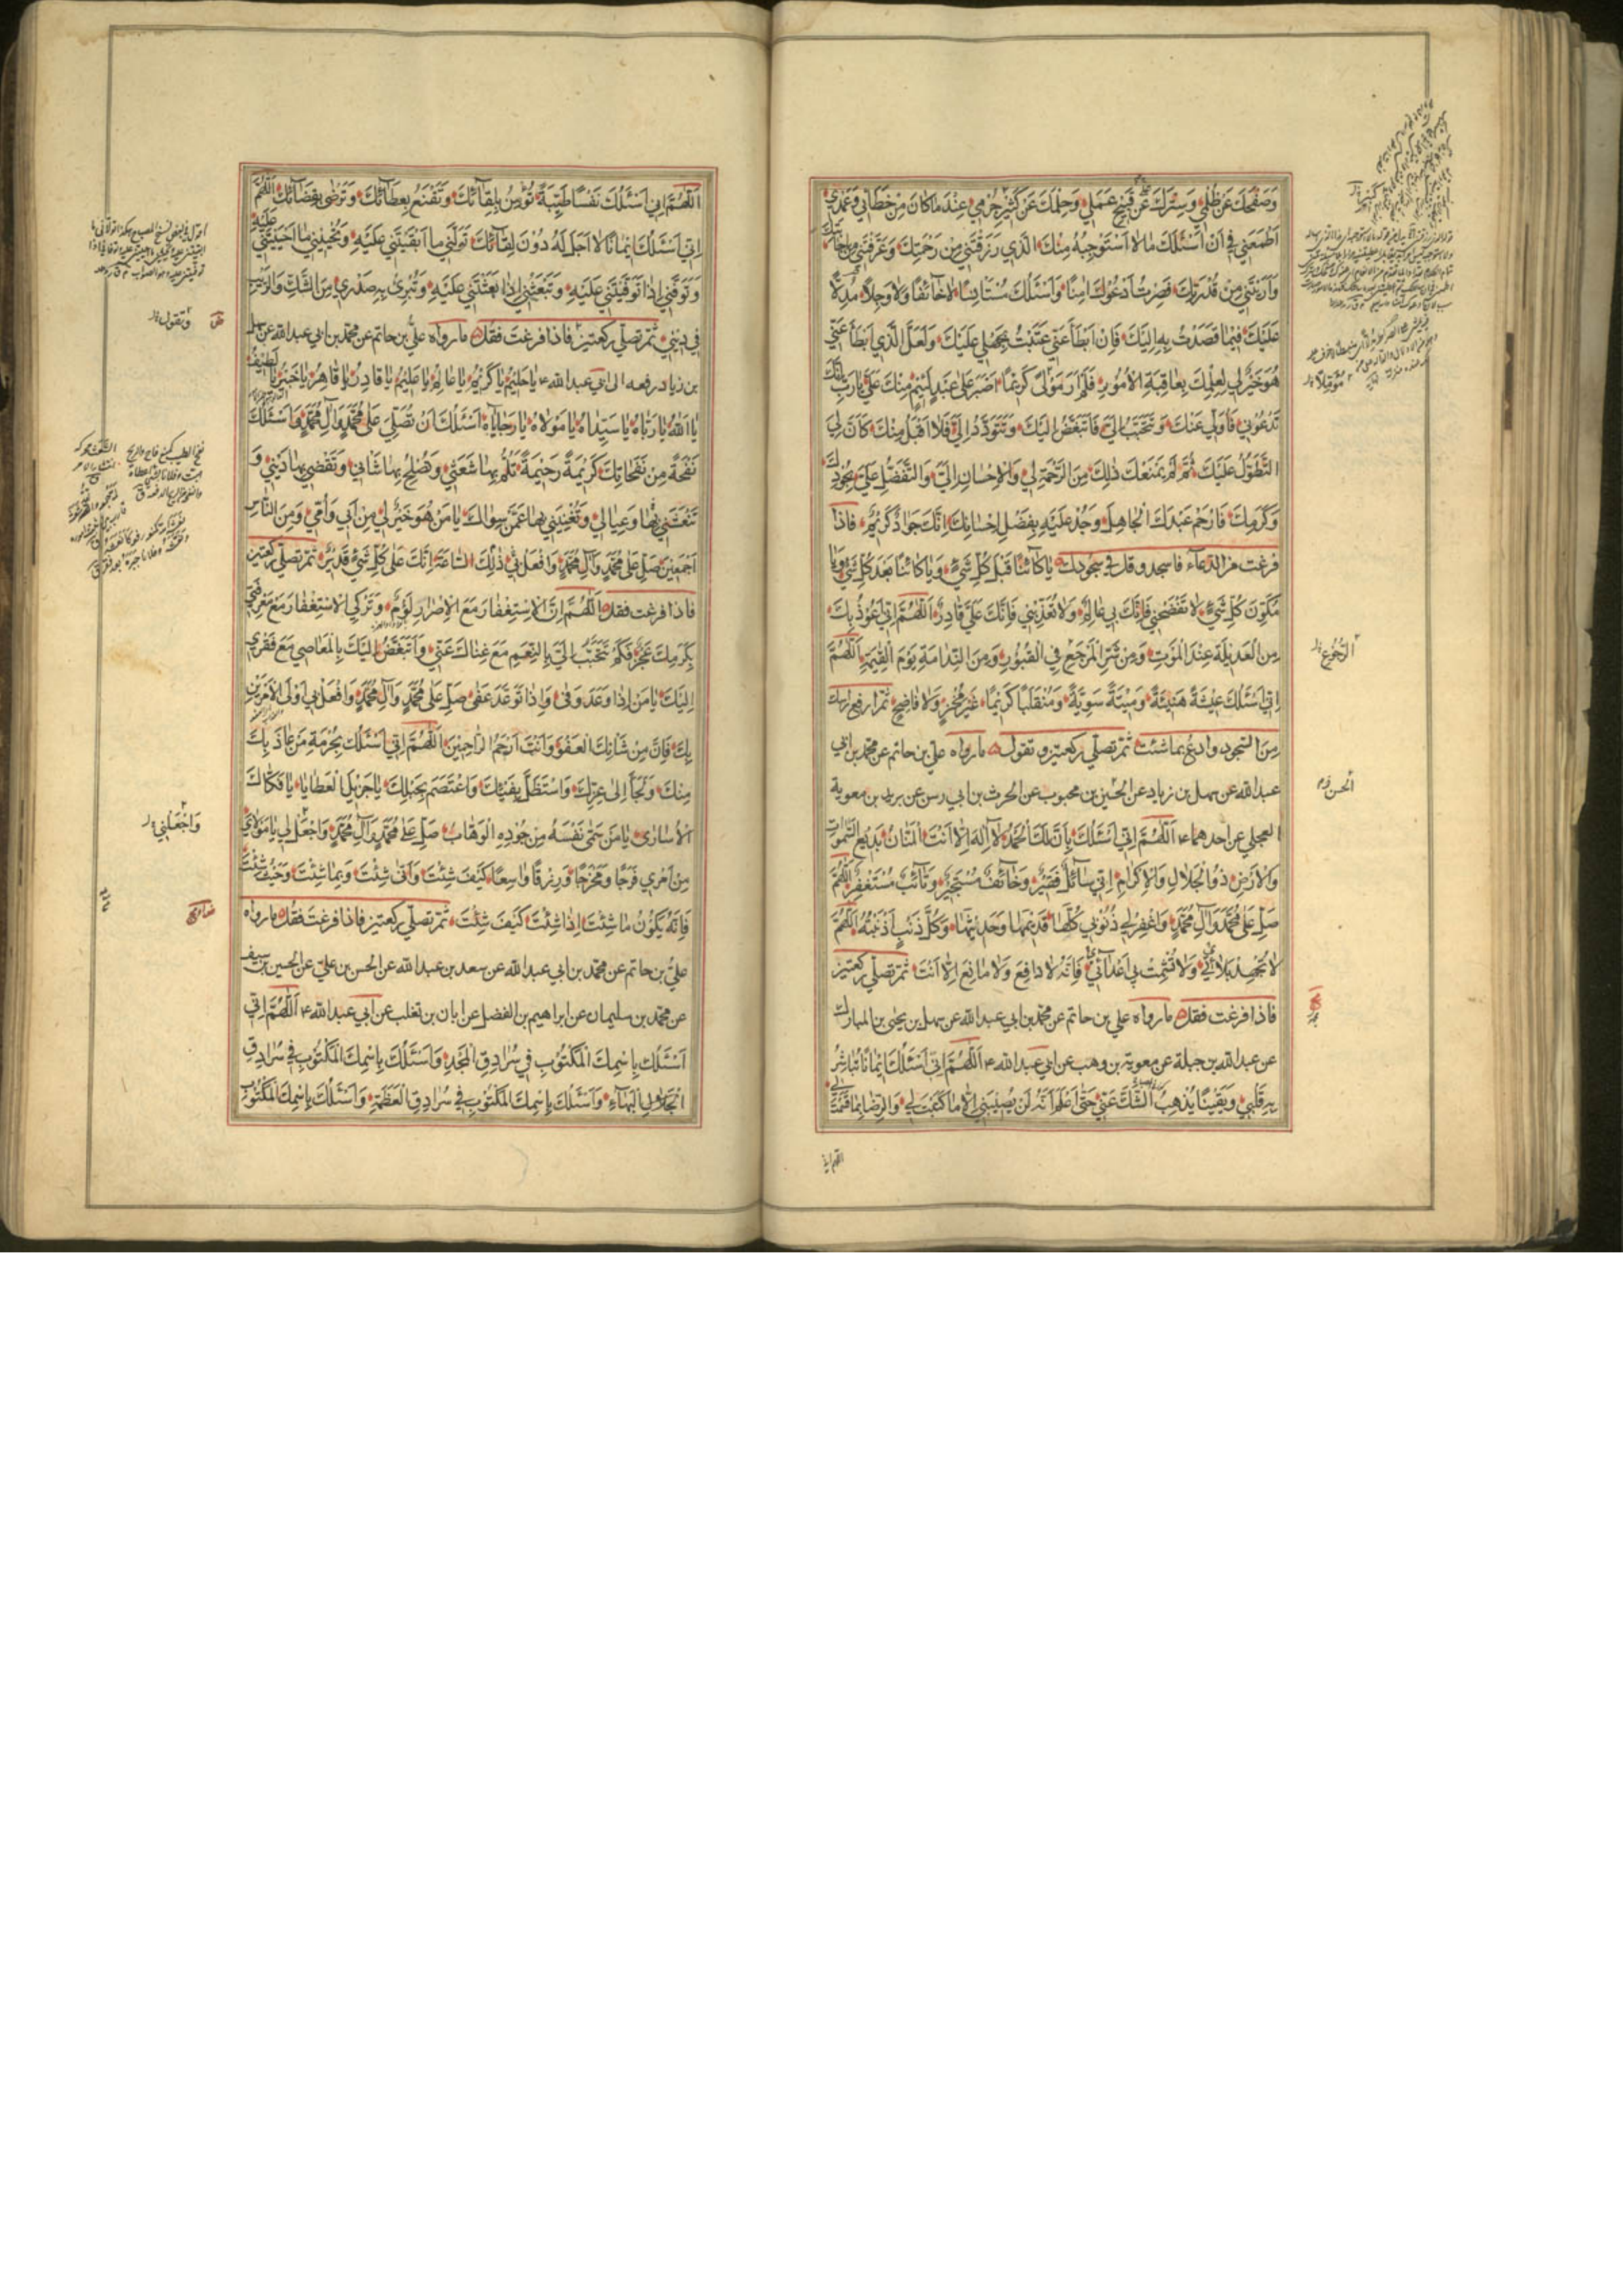 وَصَفْحَكَ عَنْ ظُلْمِي وَسِتْرَكَ عَنْ قَبِيحِ عَمَلِي وَحِلْمَكَ عَنْ كَثِيرِ جُرْمِي عِنْدَ مَا كَانَ مِنْ خَطَائِي وَعَمْدِي
أَطْمَعَنِي فِي أَنْ أَسْئَلَكَ مَا لَا أَسْتَوْجِبُهُ مِنْكَ الَّذِي رَزَقْتَنِي مِنْ رَحْمَتِكَ وَعَرَّفْتَنِي مِنْ إِجَابَتِكَ
وَأَرَيْتَنِي مِنْ قُدْرَتِكَ فَصِرْتُ أَدْعُوكَ آمِنًا وَأَسْئَلُكَ مُسْتَأْنِسًا لَا خَائِفًا وَلَا وَجِلًا مُدِلًّا
عَلَيْكَ فِيمَا قَصَدْتُ بِهِ إِلَيْكَ فَإِنْ أَبْطَأَ عَنِّي عَتَبْتُ بِجَهْلِي عَلَيْكَ وَلَعَلَّ الَّذِي أَبْطَأَ عَنِّي
هُوَ خَيْرٌ لِي لِعِلْمِكَ بِعَاقِبَةِ الْأُمُورِ فَلَمْ أَرَ مَوْلًى كَرِيمًا أَصْبَرَ عَلَى عَبْدٍ لَئِيمٍ مِنْكَ عَلَيَّ يَا رَبِّ إِنَّكَ
تَدْعُونِي فَأُوَلِّي عَنْكَ وَتَتَحَبَّبُ إِلَيَّ فَأَتَبَغَّضُ إِلَيْكَ وَتَتَوَدَّدُ إِلَيَّ فَلَا أَقْبَلُ مِنْكَ كَأَنَّ لِيَ
التَّطَوُّلَ عَلَيْكَ ثُمَّ لَمْ يَمْنَعْكَ ذَلِكَ مِنَ الرَّحْمَةِ لِي وَالْإِحْسَانِ إِلَيَّ وَالتَّفَضُّلِ عَلَيَّ بِجُودِكَ
وَكَرَمِكَ فَارْحَمْ عَبْدَكَ الْجَاهِلَ وَجُدْ عَلَيْهِ بِفَضْلِ إِحْسَانِكَ إِنَّكَ جَوَادٌ كَرِيمٌ فاذا
فرغت من الدعاء فاسجد وقل في سجودك يَا كَائِنًا قَبْلَ كُلِّ شَيْءٍ وَيَا كَائِنًا بَعْدَ كُلِّ شَيْءٍ وَيَا
مُكَوِّنَ كُلِّ شَيْءٍ لَا تَفْضَحْنِي فَإِنَّكَ بِي عَالِمٌ وَلَا تُعَذِّبْنِي فَإِنَّكَ عَلَيَّ قَادِرٌ اَللَّهُمَّ إِنِّي أَعُوذُ بِكَ
مِنَ الْعَدِيلَةِ عِنْدَ الْمَوْتِ وَمِنْ شَرِّ الْمَرْجَعِ فِي الْقُبُورِ وَمِنَ النَّدَامَةِ يَوْمَ الْقِيٰمَةِ اَللَّهُمَّ
إِنِّي أَسْئَلُكَ عِيشَةً هَنِيئَةً وَمِيتَةً سَوِيَّةً وَمُنْقَلَبًا كَرِيمًا غَيْرَ مُخْزٍ وَلَا فَاضِحٍ ثم ارفع راسك
من السجود وادع بما شئت ثم تصلي ركعتين وتقول ما رواه علي بن حاتم عن محمد بن ابي
عبد الله عن سهل بن زياد عن الحسين بن محبوب عن الحرث بن ابي رسن عن بريد بن معوية
العجلي عن احدهما ع اَللَّهُمَّ إِنِّي أَسْئَلُكَ بِأَنَّ لَكَ الْحَمْدَ لَا إِلٰهَ إِلَّا أَنْتَ الْمَنَّانُ بَدِيعُ السَّمٰوَاتِ
وَالْأَرْضِ ذُو الْجَلَالِ وَالْإِكْرَامِ إِنِّي سَائِلٌ فَقِيرٌ وَخَائِفٌ مُسْتَجِيرٌ وَتَائِبٌ مُسْتَغْفِرٌ اَللَّهُمَّ
صَلِّ عَلَى مُحَمَّدٍ وَآلِ مُحَمَّدٍ وَاغْفِرْ لِي ذُنُوبِي كُلَّهَا قَدِيمَهَا وَحَدِيثَهَا وَكُلَّ ذَنْبٍ أَذْنَبْتُهُ اَللَّهُمَّ
لَا تُجْهِدْ بَلَائِي وَلَا تُشْمِتْ بِي أَعْدَائِي فَإِنَّهُ لَا دَافِعَ وَلَا مَانِعَ إِلَّا أَنْتَ ثم تصلي ركعتين
فاذا فرغت فقل ما رواه علي بن حاتم عن محمد بن ابي عبد الله عن سهل بن يحيى بن المبارك
عن عبد الله بن جبلة عن معوية بن وهب عن ابي عبد الله ع اَللَّهُمَّ إِنِّي أَسْئَلُكَ إِيمَانًا تُبَاشِرُ
بِهِ قَلْبِي وَيَقِينًا يُذْهِبُ الشَّكَّ عَنِّي حَتَّى أَعْلَمَ أَنَّهُ لَنْ يُصِيبَنِي إِلَّا مَا كَتَبْتَ لِي وَالرِّضَا بِمَا قَسَمْتَ لِي
اللهم اني
مُؤَمِّلًا
الرُّجُوعِ
الحسن
اَللَّهُمَّ إِنِّي أَسْئَلُكَ نَفْسًا طَيِّبَةً تُؤْمِنُ بِلِقَائِكَ وَتَقْنَعُ بِعَطَائِكَ وَتَرْضَى بِقَضَائِكَ اَللَّهُمَّ
إِنِّي أَسْئَلُكَ إِيمَانًا لَا أَجَلَ لَهُ دُونَ لِقَائِكَ تَوَلَّنِي مَا أَبْقَيْتَنِي عَلَيْهِ وَتُحْيِينِي مَا أَحْيَيْتَنِي عَلَيْهِ
وَتَوَفَّنِي إِذَا تَوَفَّيْتَنِي عَلَيْهِ وَتَبْعَثُنِي إِذَا بَعَثْتَنِي عَلَيْهِ وَتُبْرِئُ بِهِ صَدْرِي مِنَ الشَّكِّ وَالرَّيْبِ
فِي دِينِي ثم تصلي ركعتين فاذا فرغت فقل ما رواه علي بن حاتم عن محمد بن ابي عبد الله عن سهل
بن زياد رفعه الى ابي عبد الله ع يَا حَلِيمُ يَا كَرِيمُ يَا عَالِمُ يَا عَلِيمُ يَا قَادِرُ يَا قَاهِرُ يَا خَبِيرُ يَا لَطِيفُ
يَا اَللّٰهُ يَا رَبَّاهُ يَا سَيِّدَاهُ يَا مَوْلَاهُ يَا رَجَايَاهُ أَسْئَلُكَ أَنْ تُصَلِّيَ عَلَى مُحَمَّدٍ وَآلِ مُحَمَّدٍ وَأَسْئَلُكَ
نَفْحَةً مِنْ نَفَحَاتِكَ كَرِيمَةً رَحِيمَةً تَلُمُّ بِهَا شَعَثِي وَتُصْلِحُ بِهَا شَأْنِي وَتَقْضِي بِهَا دَيْنِي وَ
تَنْعَشُنِي بِهَا وَعِيَالِي وَتُغْنِينِي بِهَا عَمَّنْ سِوَاكَ يَا مَنْ هُوَ خَيْرٌ لِي مِنْ أَبِي وَأُمِّي وَمِنَ النَّاسِ
أَجْمَعِينَ صَلِّ عَلَى مُحَمَّدٍ وَآلِ مُحَمَّدٍ وَافْعَلْ بِي ذَلِكَ السَّاعَةَ إِنَّكَ عَلَى كُلِّ شَيْءٍ قَدِيرٌ ثم تصلي ركعتين
فاذا فرغت فقل اَللَّهُمَّ إِنَّ الْاسْتِغْفَارَ مَعَ الْإِصْرَارِ لُؤْمٌ وَتَرْكِي الْاسْتِغْفَارَ مَعَ مَعْرِفَتِي
بِكَرَمِكَ عَجْزٌ فَكَمْ تَتَحَبَّبُ إِلَيَّ بِالنِّعَمِ مَعَ غِنَاكَ عَنِّي وَأَتَبَغَّضُ إِلَيْكَ بِالْمَعَاصِي مَعَ فَقْرِي
إِلَيْكَ يَا مَنْ إِذَا وَعَدَ وَفَى وَإِذَا تَوَعَّدَ عَفَى صَلِّ عَلَى مُحَمَّدٍ وَآلِ مُحَمَّدٍ وَافْعَلْ بِي أَوْلَى الْأَمْرَيْنِ
بِكَ فَإِنَّ مِنْ شَأْنِكَ الْعَفْوَ وَأَنْتَ أَرْحَمُ الرَّاحِمِينَ اَللَّهُمَّ إِنِّي أَسْئَلُكَ بِحُرْمَةِ مَنْ عَاذَ بِكَ
مِنْكَ وَلَجَأَ إِلَى عِزِّكَ وَاسْتَظَلَّ بِفَيْئِكَ وَاعْتَصَمَ بِحَبْلِكَ يَا جَزِيلَ الْعَطَايَا يَا فَكَّاكَ
الْأُسَارَى يَا مَنْ سَمَّى نَفْسَهُ مِنْ جُودِهِ الْوَهَّابَ صَلِّ عَلَى مُحَمَّدٍ وَآلِ مُحَمَّدٍ وَاجْعَلْ لِي يَا مَوْلَايَ
مِنْ أَمْرِي فَرَجًا وَمَخْرَجًا وَرِزْقًا وَاسِعًا كَيْفَ شِئْتَ وَأَنَّى شِئْتَ وَبِمَا شِئْتَ وَحَيْثُ شِئْتَ
فَإِنَّهُ يَكُونُ مَا شِئْتَ إِذَا شِئْتَ كَيْفَ شِئْتَ ثم تصلي ركعتين فاذا فرغت فقل ما رواه
علي بن حاتم عن محمد بن ابي عبد الله عن سعد بن عبد الله عن الحسن بن علي عن الحسين بن سيف
عن محمد بن سليمان عن ابراهيم بن الفضل عن ابان بن تغلب عن ابي عبد الله ع اَللَّهُمَّ إِنِّي
أَسْئَلُكَ بِاسْمِكَ الْمَكْتُوبِ فِي سُرَادِقِ الْمَجْدِ وَأَسْئَلُكَ بِاسْمِكَ الْمَكْتُوبِ فِي سُرَادِقِ
الْجَلَالِ الْبَهَاءِ وَأَسْئَلُكَ بِاسْمِكَ الْمَكْتُوبِ فِي سُرَادِقِ الْعَظَمَةِ وَأَسْئَلُكَ بِاسْمِكَ الْمَكْتُوبِ
وتقول
وَاجْعَلْنِي